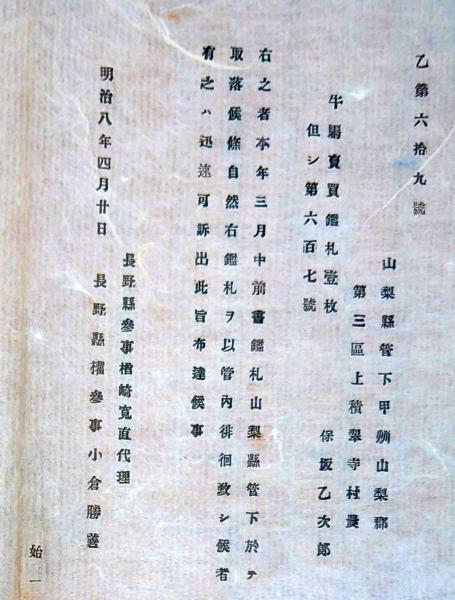 乙第六拾九號
山梨縣管下甲州山梨郡
第三區上積翠寺村農
保坂乙次郎
牛馬賣買鑑札壹枚
但シ第六百七號
右之者本年三月中前書鑑札山梨縣管下於テ
取落候條自然右鑑札ヲ以管內徘徊致シ候者
有之ハ迅速可訴出此旨布達候事
明治八年四月廿日
長野縣參事楢崎寬直代理
長野縣權參事小倉勝善
始一